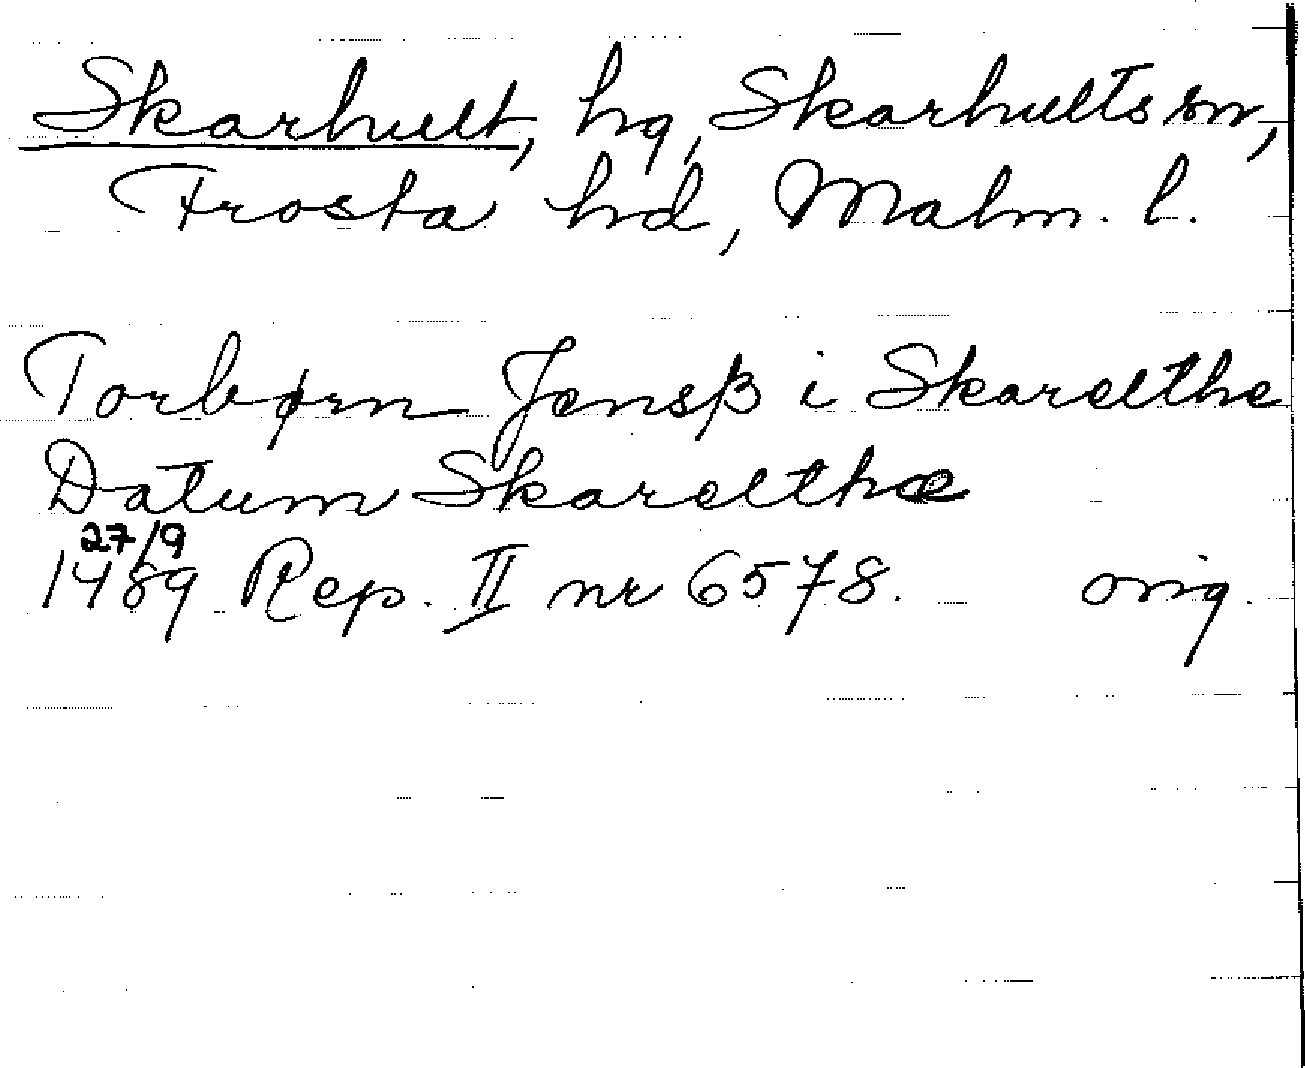 Skarhult, hg, Skarhults sn,
Frosta hd, Malm. l.
Torbørn Jensß i Skarelthe
Datum Skarelthæ
27/9
1489 Rep. II nr 6578. orig.